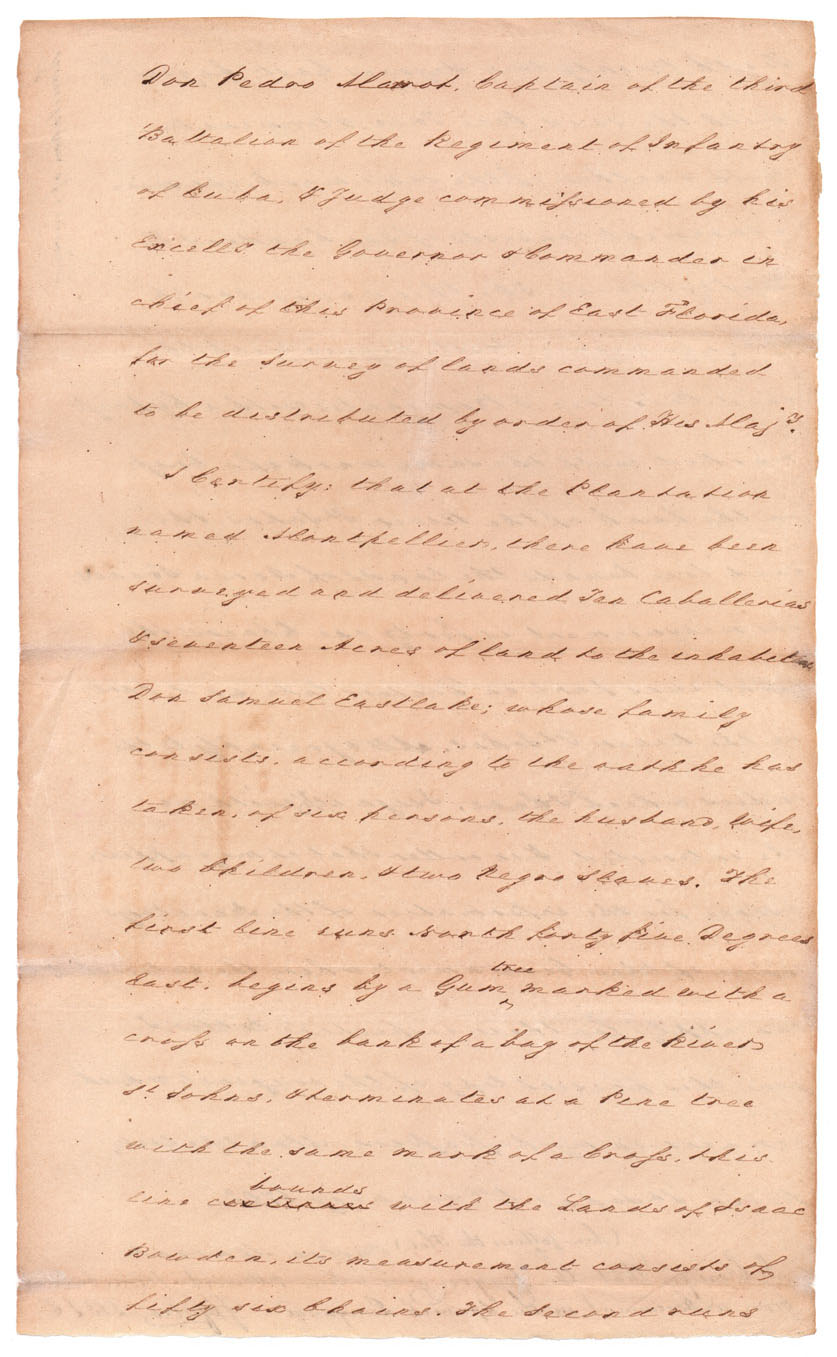 Don Pedro Marrot, Captain of the third
Battalion of the Regiment of Infantry
of Cuba, & Judge commissioned by his
Excell.y the Governor & Commander in
chief of this Province of East Florida,
for the survey of lands commanded
to be distributed by order of His Maj.y.
I Certify: that at the Plantation
named Montpellier, there have been
surveyed and delivered Ten Caballerias
& seventeen Acres of land to the inhabitan
Don Samuel Eastlake; whose family
consists, according to the oath he has
taken, of six persons, the husband, Wife,
two Children, & two Negro Slaves. The
first line runs North forty five Degrees
East, begins by a Gum tree marked with a
cross on the bank of a bay of the River
St Johns, & terminates at a Pine tree
with the same mark of a Cross, this
line bounds with the Lands of Isaac
Bowden, its measurement consists of
fifty six Chains. The Second runs